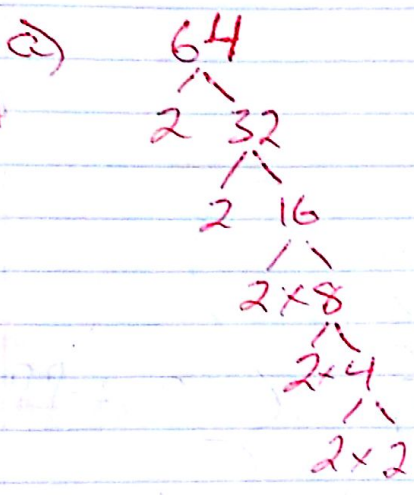 a) 64
2 32
2 16
2 × 8
2 × 4
2 × 2